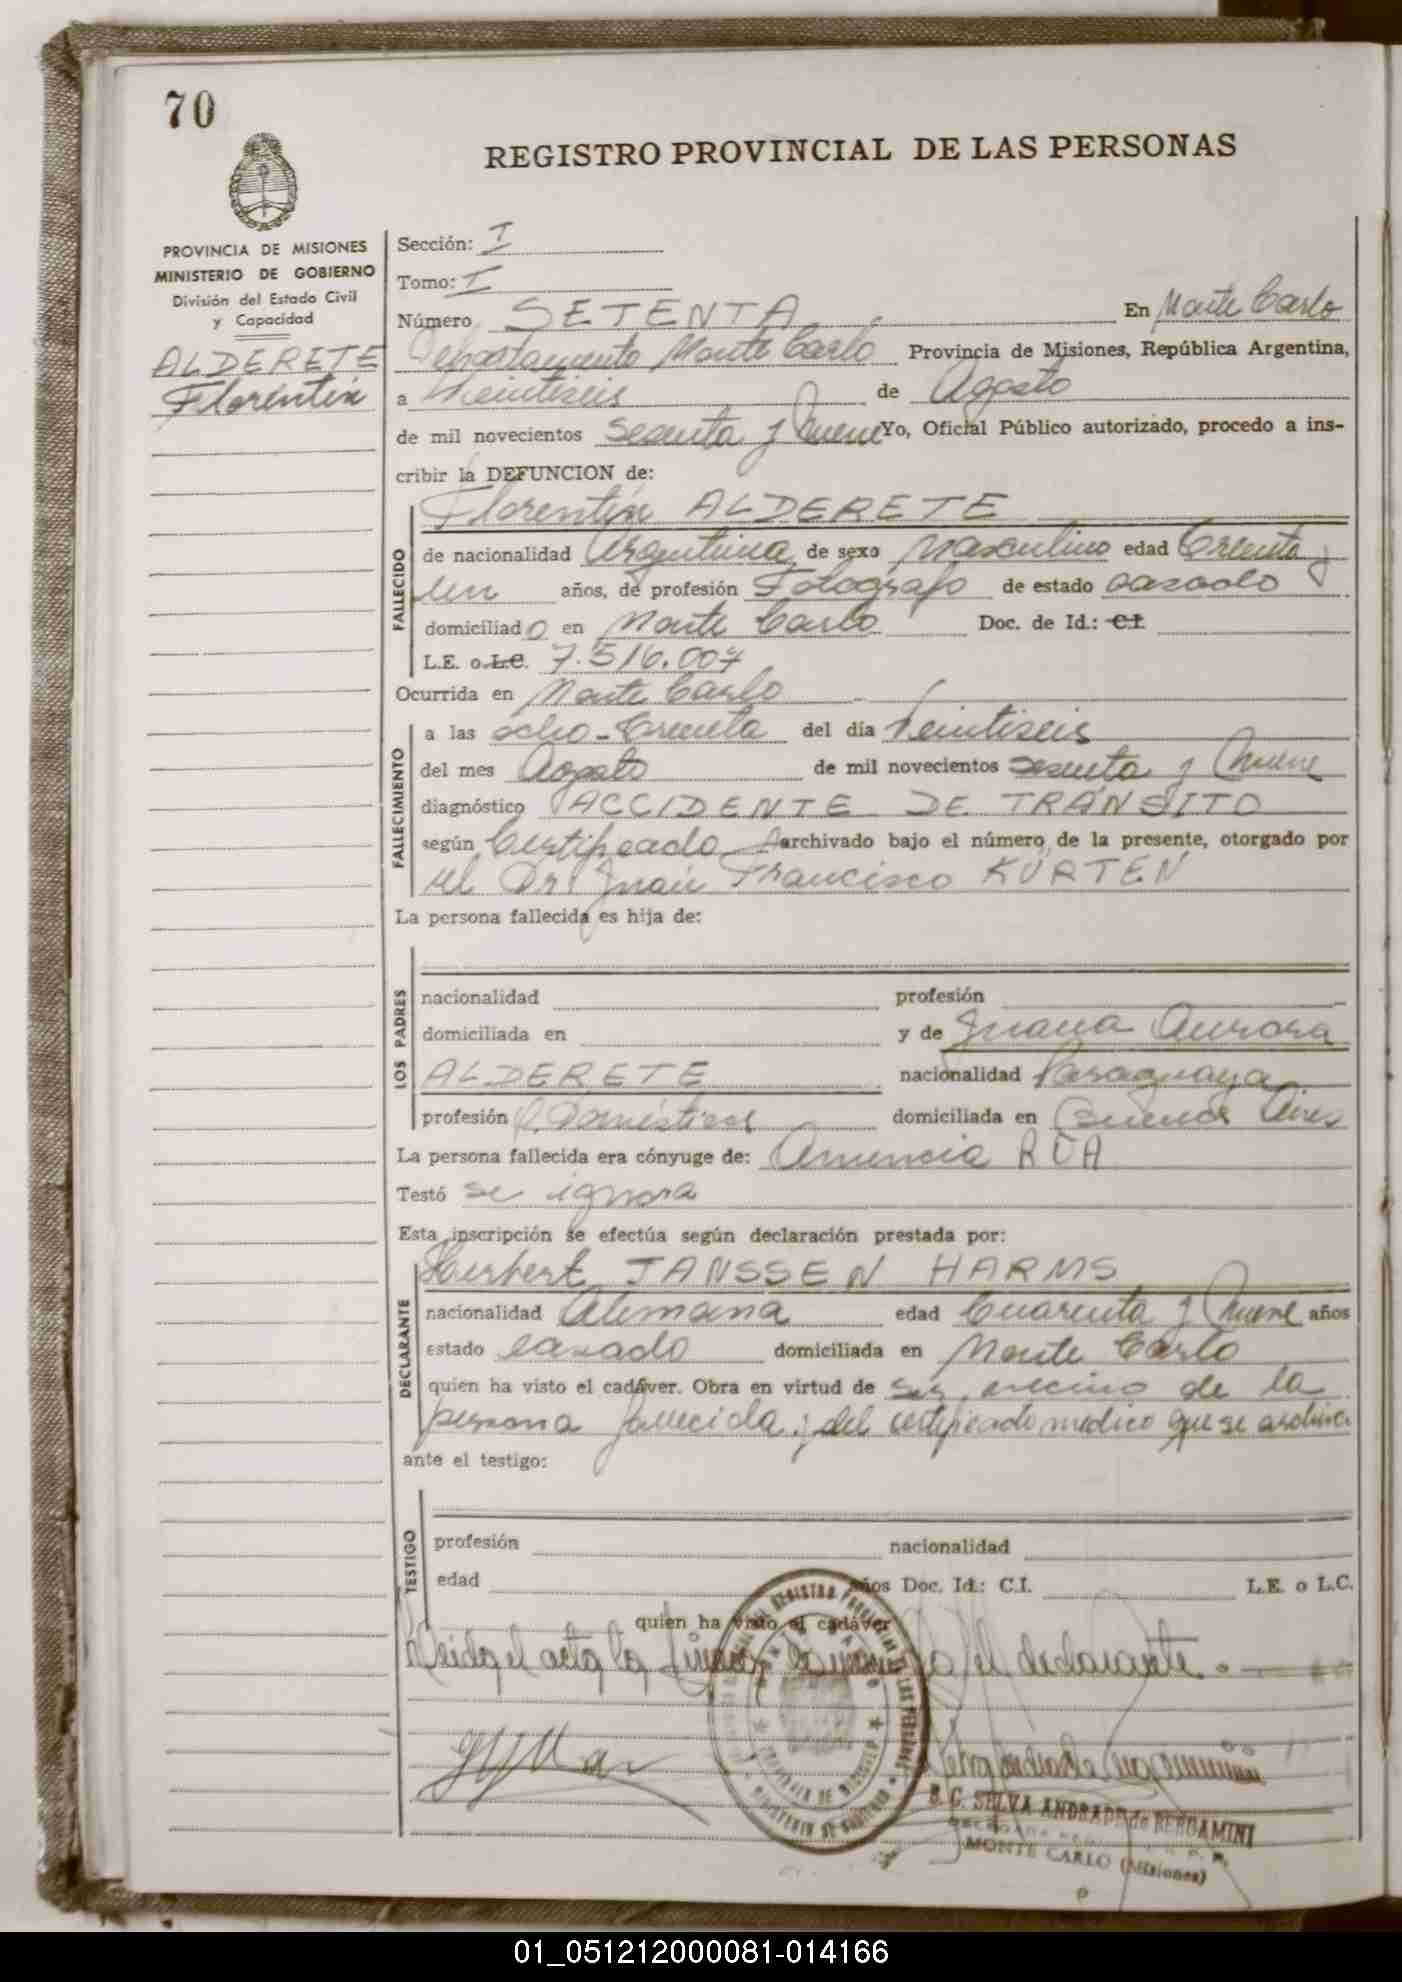 70
REGISTRO PROVINCIAL DE LAS PERSONAS
PROVINCIA DE MISIONES
MINISTERIO DE GOBIERNO
División del Estado Civil
y Capacidad
ALDERETE
Florentín
Sección: I
Tomo: I
Número SETENTA En Monte Carlo
Departamento Monte Carlo Provincia de Misiones, República Argentina,
a Veintiseis de Agosto
de mil novecientos sesenta y Nueve Yo, Oficial Público autorizado, procedo a ins-
cribir la DEFUNCION de:
FALLECIDO
Florentín ALDERETE
de nacionalidad Argentina de sexo Masculino edad Treinta y
un años, de profesión Fotógrafo de estado casado
domiciliado en Monte Carlo Doc. de Id.: C.I.
L.E. o L.C. 7.516.007
Ocurrida en Monte Carlo
FALLECIMIENTO
a las ocho-treinta del día Veintiseis
del mes Agosto de mil novecientos sesenta y Nueve
diagnóstico ACCIDENTE DE TRANSITO
según Certificado archivado bajo el número de la presente, otorgado por
el Dr. Juan Francisco KÜRTEN
La persona fallecida es hija de:
LOS PADRES
nacionalidad profesión
domiciliada en y de Juana Aurora
ALDERETE nacionalidad Paraguaya
profesión Q. Domésticos domiciliada en Buenos Aires
La persona fallecida era cónyuge de: Amencia RUA
Testó se ignora
Esta inscripción se efectúa según declaración prestada por:
DECLARANTE
Herbert JANSSEN HARMS
nacionalidad Alemana edad Cuarenta y Nueve años
estado casado domiciliada en Monte Carlo
quien ha visto el cadáver. Obra en virtud de ser vecino de la
persona fallecida y del certificado médico que se archiva
ante el testigo:
TESTIGO
profesión nacionalidad
edad años Doc. Id.: C.I. L.E. o L.C.
quien ha visto el cadáver
Leida el acta la firma conmigo el declarante.
B. C. SELVA ANDRADE de BERGAMINI
MONTE CARLO (Misiones)
01_051212000081-014166